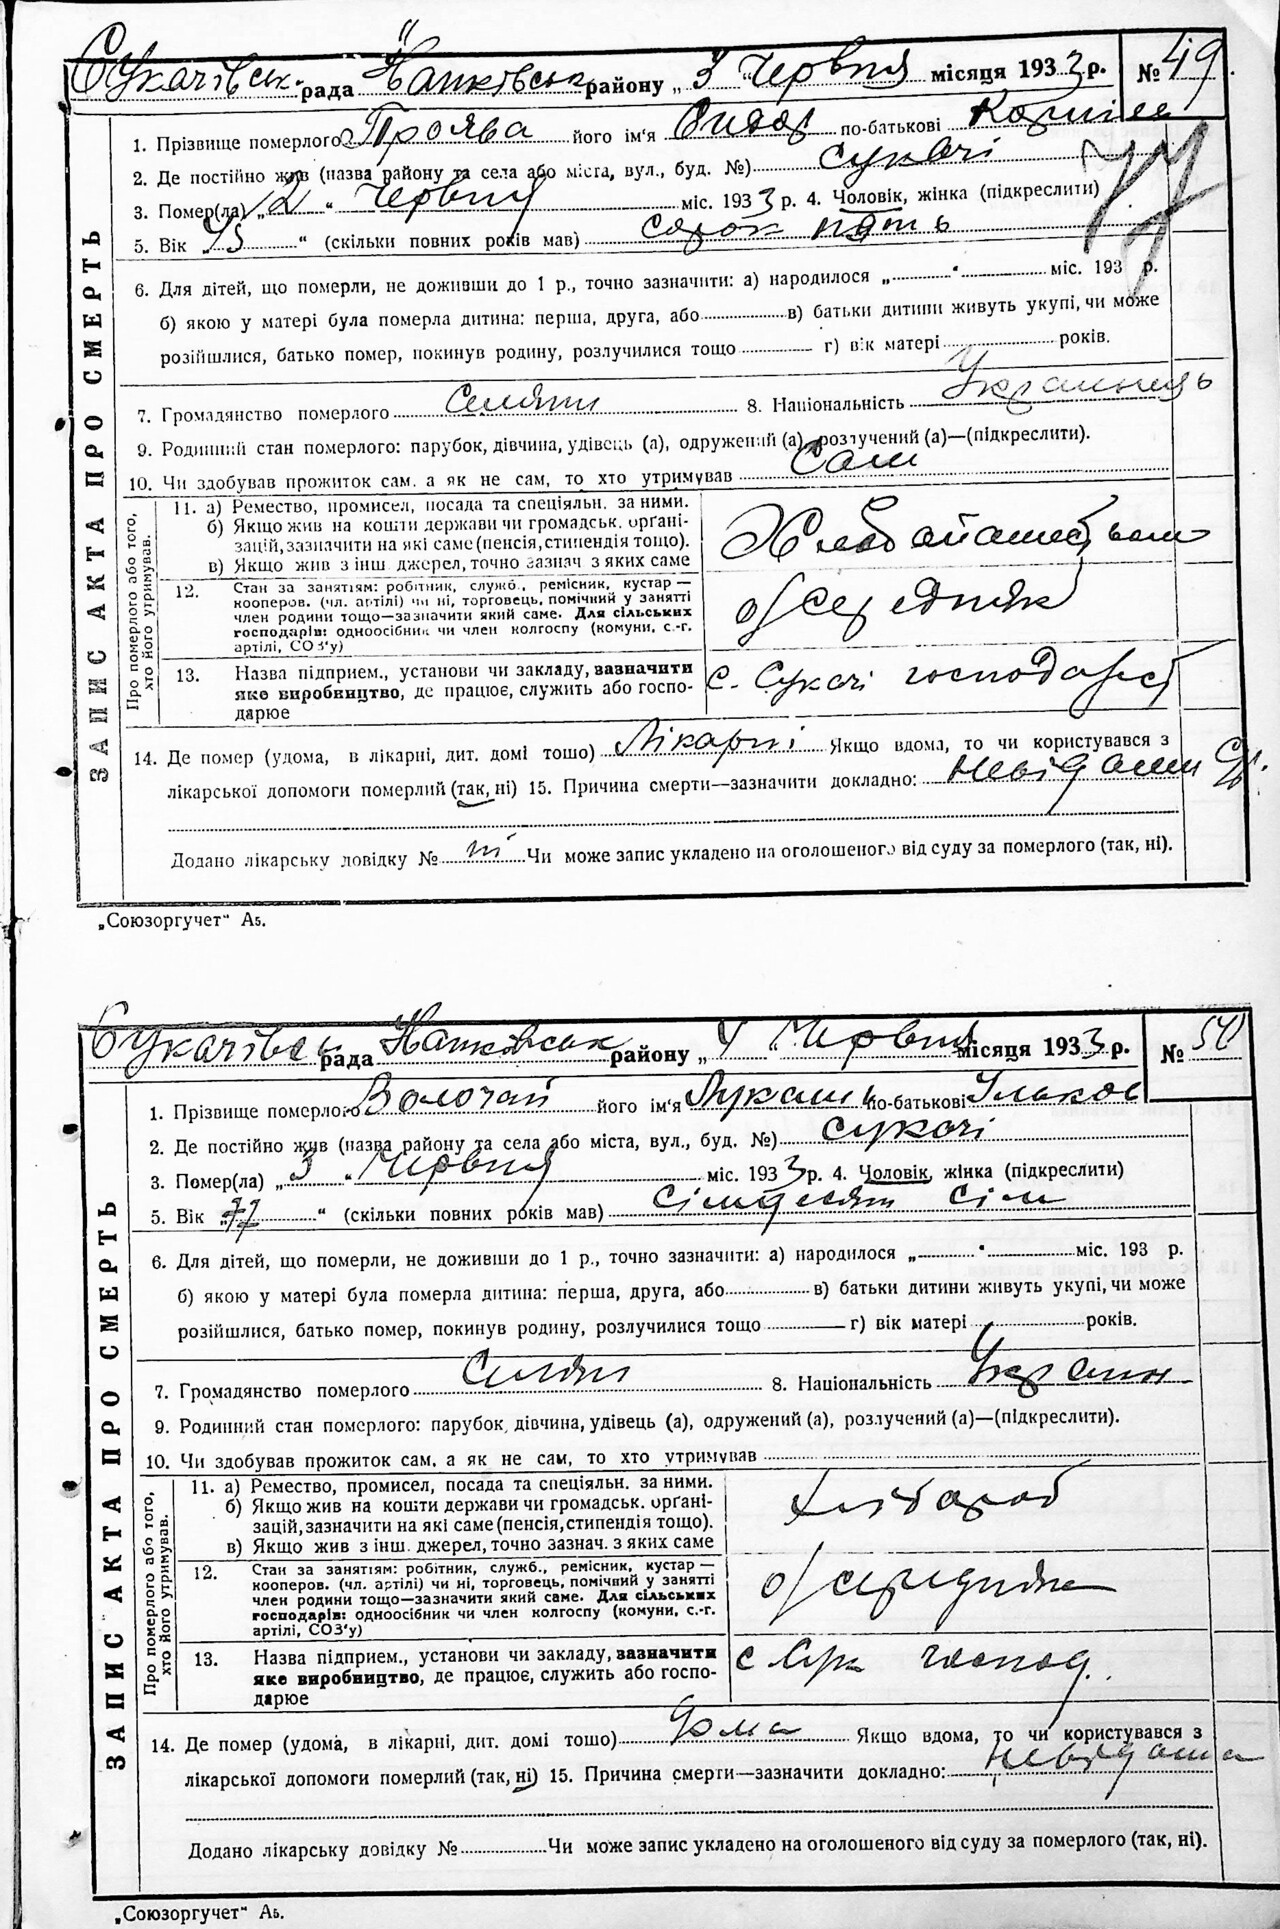 Сукачівськ. рада Іванківськ району „3“ Червня місяця 1933 р. № 49.
ЗАПИС АКТА ПРО СМЕРТЬ
1. Прізвище померлого Проява його ім'я Сидор по-батькові
2. Де постійно жив (назва району та села або міста, вул., буд. №) Сукачі
3. Помер(ла) „2“ Червня міс. 1933 р. 4. Чоловік, жінка (підкреслити)
5. Вік „45“ (скільки повних років мав) сорок пять
6. Для дітей, що померли, не доживши до 1 р., точно зазначити: а) народилося „ “ міс. 193 р.
б) якою у матері була померла дитина: перша, друга, або в) батьки дитини живуть укупі, чи може
розійшлися, батько помер, покинув родину, розлучилися тощо г) вік матері років.
7. Громадянство померлого Селянин 8. Національність Украинець
9. Родинний стан померлого: парубок, дівчина, удівець (а), одружений (а), розлучений (а)—(підкреслити).
10. Чи здобував прожиток сам, а як не сам, то хто утримував Сам
Про померлого або того, хто його утримував.
11. а) Ремество, промисел, посада та спеціяльн. за ними.
б) Якщо жив на кошти держави чи громадськ. орґані-
зацій, зазначити на які саме (пенсія, стипендія тощо).
в) Якщо жив з інш. джерел, точно зазнач. з яких саме
12. Стан за занятіям: робітник, служб., ремісник, кустар —
кооперов. (чл. артілі) чи ні, торговець, помічний у занятті
член родини тощо—зазначити який саме. Для сільських
господарів: одноосібник чи член колгоспу (комуни, с.-г.
артілі, СОЗ'у)
о/середняк
13. Назва підприєм., установи чи закладу, зазначити
яке виробництво, де працює, служить або госпо-
дарює
с. Сукачі господарст
14. Де помер (удома, в лікарні, дит. домі тошо) Лікарні Якщо вдома, то чи користувався з
лікарської допомоги померлий (так, ні) 15. Причина смерти—зазначити докладно:
Додано лікарську довідку № ні Чи може запис укладено на оголошеного від суду за померлого (так, ні).
„Союзоргучет“ А5.
Сукачівськ рада Іванківськ району „4“ Червня місяця 1933 р. № 50
ЗАПИС АКТА ПРО СМЕРТЬ
1. Прізвище померлого Волочай його ім'я Лукаш по-батькові Ульков
2. Де постійно жив (назва району та села або міста, вул., буд. №) Сукачі
3. Помер(ла) „3“ Червня міс. 1933 р. 4. Чоловік, жінка (підкреслити)
5. Вік „77“ (скільки повних років мав) сімдесят сім
6. Для дітей, що померли, не доживши до 1 р., точно зазначити: а) народилося „ “ міс. 193 р.
б) якою у матері була померла дитина: перша, друга, або в) батьки дитини живуть укупі, чи може
розійшлися, батько помер, покинув родину, розлучилися тощо г) вік матері років.
7. Громадянство померлого Селян 8. Національність Украин
9. Родинний стан померлого: парубок, дівчина, удівець (а), одружений (а), розлучений (а)—(підкреслити).
10. Чи здобував прожиток сам, а як не сам, то хто утримував
Про померлого або того, хто його утримував.
11. а) Ремество, промисел, посада та спеціяльн. за ними.
б) Якщо жив на кошти держави чи громадськ. орґані-
зацій, зазначити на які саме (пенсія, стипендія тощо).
в) Якщо жив з інш. джерел, точно зазнач. з яких саме
хлібороб
12. Стан за занятіям: робітник, служб., ремісник, кустар —
кооперов. (чл. артілі) чи ні, торговець, помічний у занятті
член родини тощо—зазначити який саме. Для сільських
господарів: одноосібник чи член колгоспу (комуни, с.-г.
артілі, СОЗ'у)
о/середняк
13. Назва підприєм., установи чи закладу, зазначити
яке виробництво, де працює, служить або госпо-
дарює
с Сук господ.
14. Де помер (удома, в лікарні, дит. домі тошо) Дома Якщо вдома, то чи користувався з
лікарської допомоги померлий (так, ні) 15. Причина смерти—зазначити докладно: невідома
Додано лікарську довідку № Чи може запис укладено на оголошеного від суду за померлого (так, ні).
„Союзоргучет“ А5.